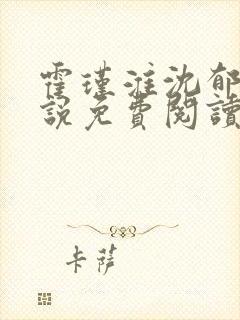 霍瑾淮沈郁
說免費閱讀
卡薩